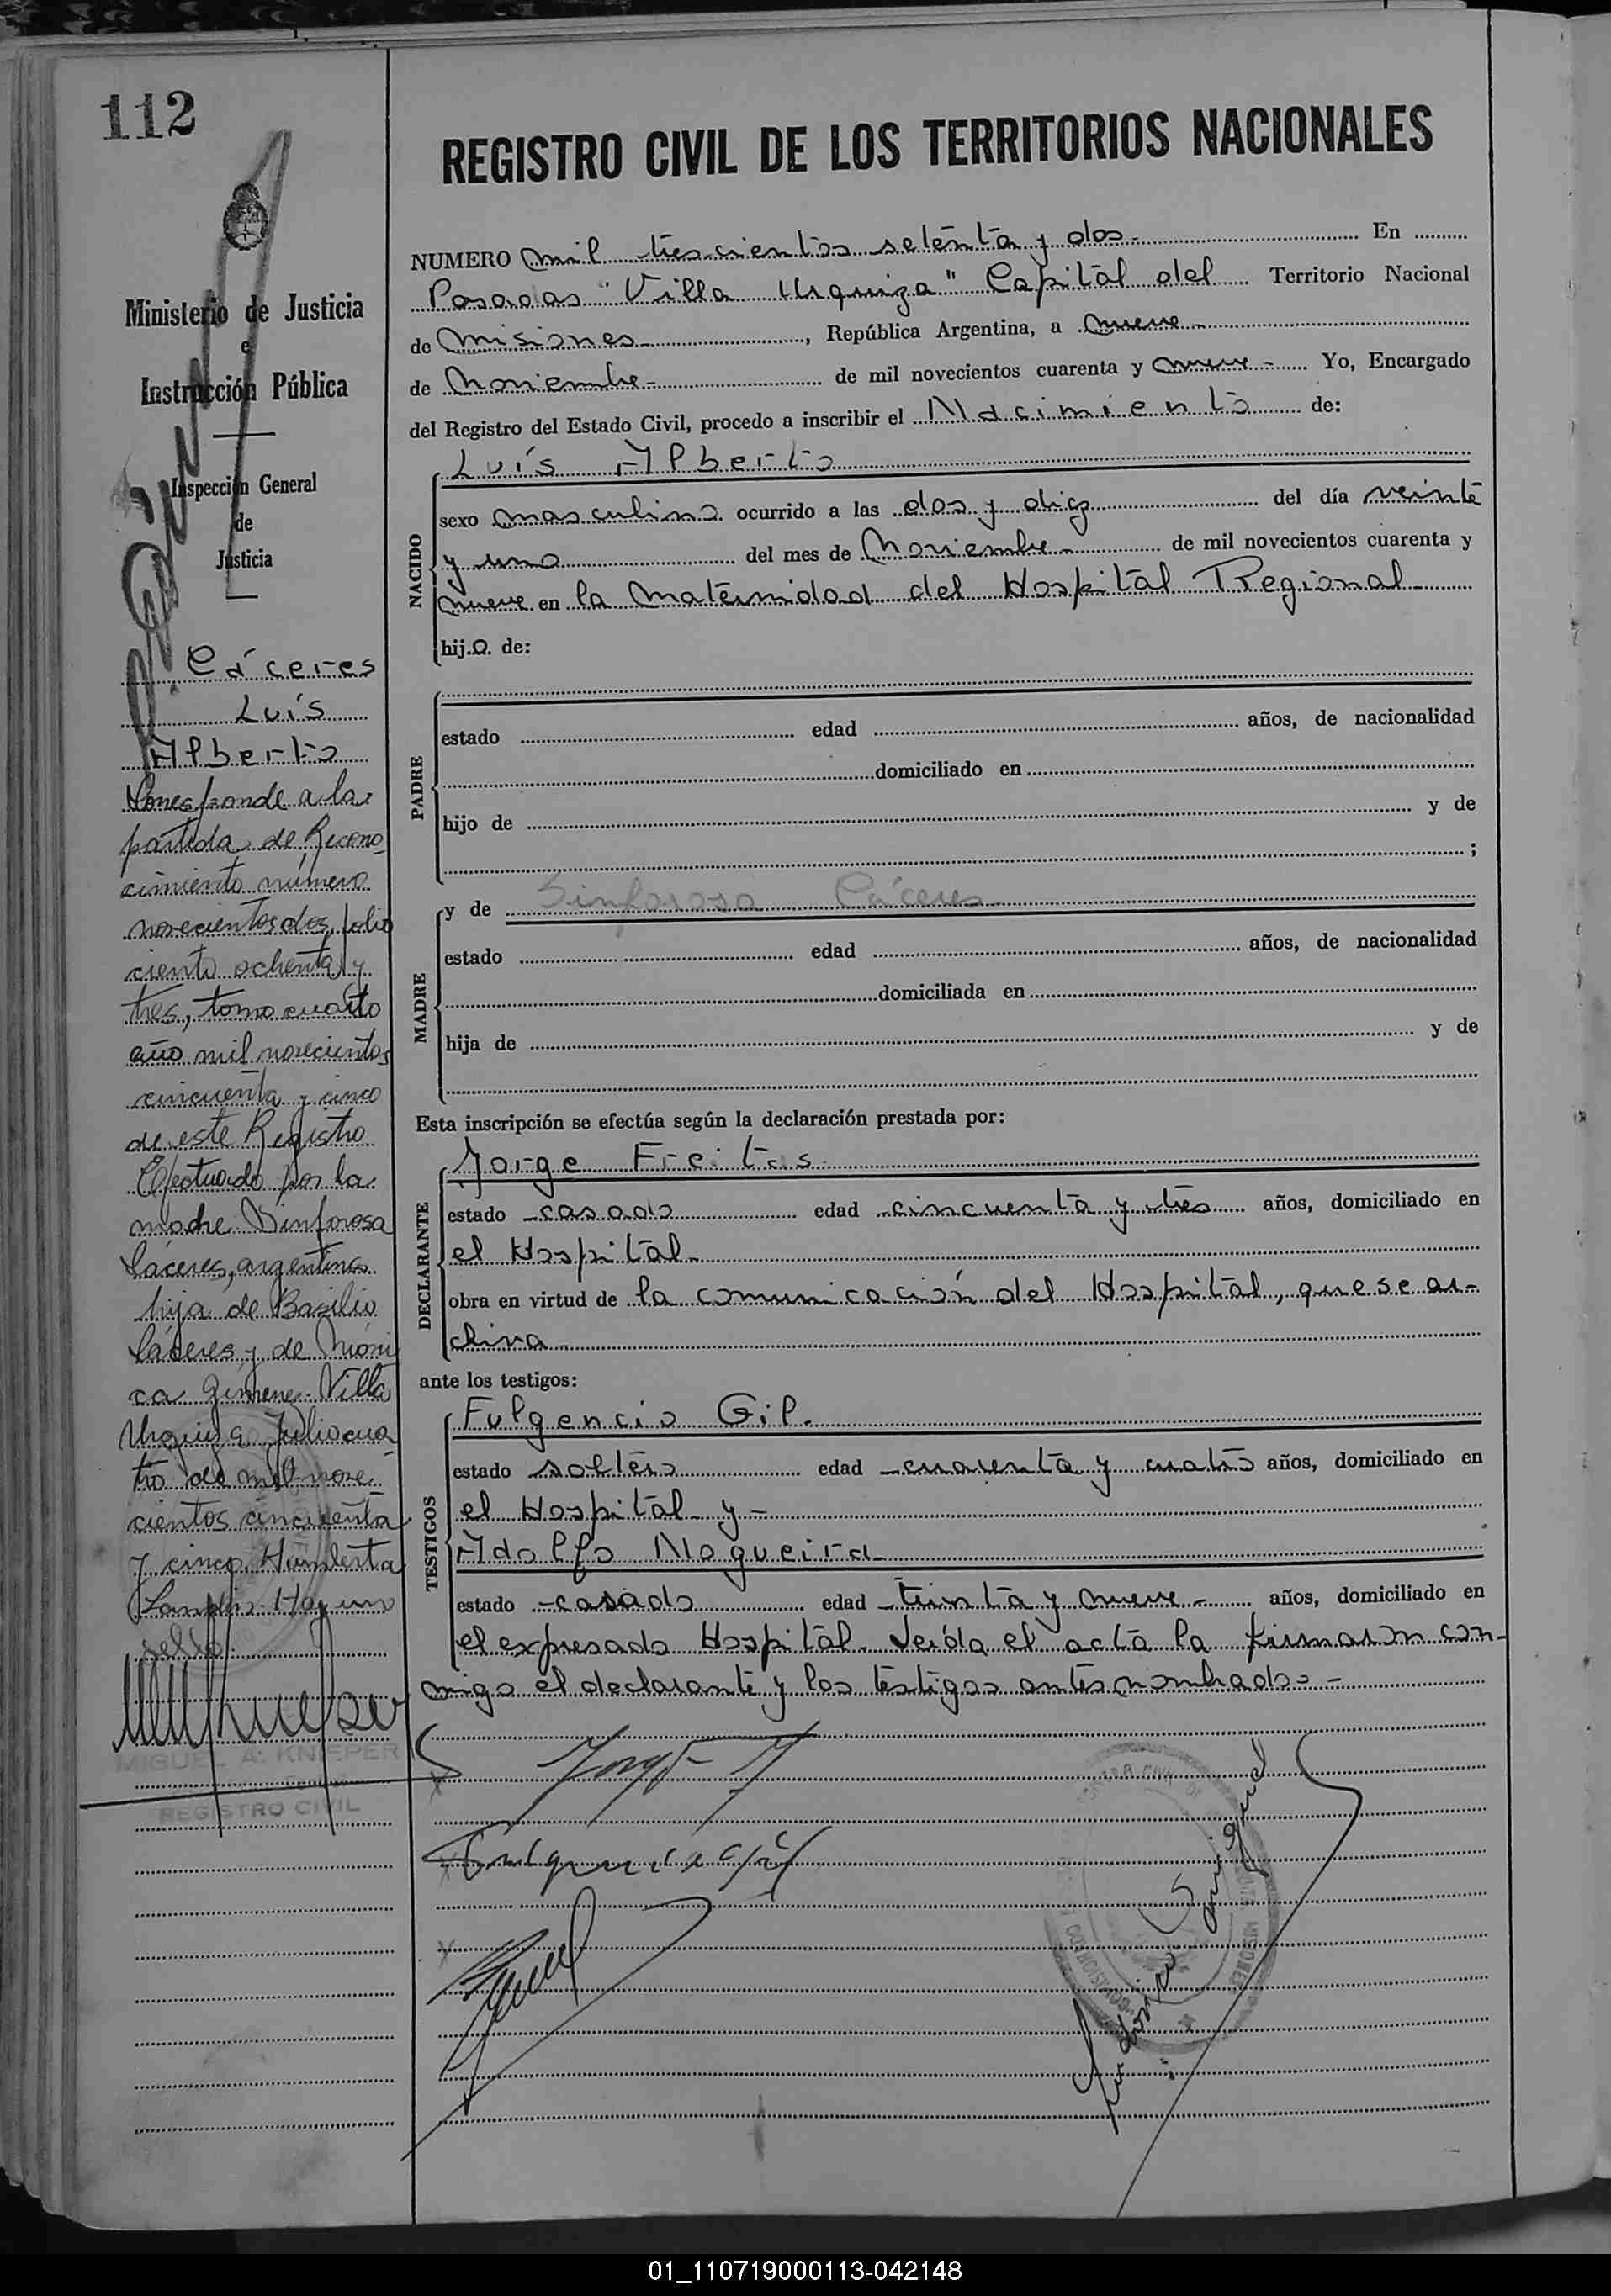 112
REGISTRO CIVIL DE LOS TERRITORIOS NACIONALES
Ministerio de Justicia
e
Instrucción Pública
Inspección General
de
Justicia
Cáceres
Luís
Alberto
Corresponde a la
partida de Recono-
cimiento número
novecientos dos, folio
ciento ochenta y
tres, tomo cuarto
año mil novecientos
cincuenta y cinco
de este Registro
Efectuado por la
madre Sinforosa
Cáceres, argentina
hija de Basilio
Cáceres y de Móni
ca Gimenez. Villa
Urquiza Julio cua
tro de mil nove-
cientos cincuenta
y cinco. Humberta
Hay un
sello.
MIGUEL A. KNIEPER
REGISTRO CIVIL
NUMERO mil trescientos setenta y dos - En
Posadas "Villa Urquiza" Capital del Territorio Nacional
de Misiones - , República Argentina, a nueve -
de Noviembre - de mil novecientos cuarenta y nueve - Yo, Encargado
del Registro del Estado Civil, procedo a inscribir el Nacimiento de:
NACIDO
Luís Alberto
sexo masculino ocurrido a las dos y diez del día veinte
y uno del mes de Noviembre - de mil novecientos cuarenta y
nueve en la Maternidad del Hospital Regional -
hij.o. de:
PADRE
estado edad años, de nacionalidad
domiciliado en
hijo de y de
;
MADRE
y de Sinforosa Cáceres
estado edad años, de nacionalidad
domiciliada en
hija de y de
Esta inscripción se efectúa según la declaración prestada por:
DECLARANTE
Jorge Freitas
estado - casado edad - cincuenta y tres años, domiciliado en
el Hospital -
obra en virtud de la comunicación del Hospital, que se ar-
chiva -
ante los testigos:
TESTIGOS
Fulgencio Gil.
estado soltero edad - cuarenta y cuatro años, domiciliado en
el Hospital y -
Adolfo Nogueira -
estado - casado edad - treinta y nueve - años, domiciliado en
el expresado Hospital. Leída el acta la firmaron con-
migo el declarante y los testigos antes nombrados -
01_110719000113-042148